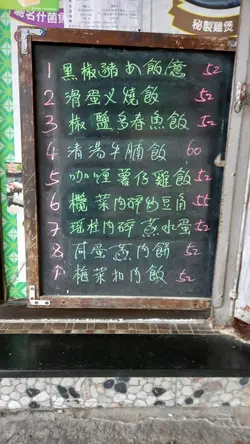 秘製雞煲
1 黑椒豬扒飯意 52
2 滑蛋叉燒飯 52
3 椒鹽多春魚飯 52
4 清湯牛腩飯 60
5 咖哩薯仔雞飯 52
6 欖菜肉碎豆角 55
7 瑤柱肉碎蒸水蛋 52
8 咸蛋蒸肉餅 52
9 梅菜扣肉飯 52